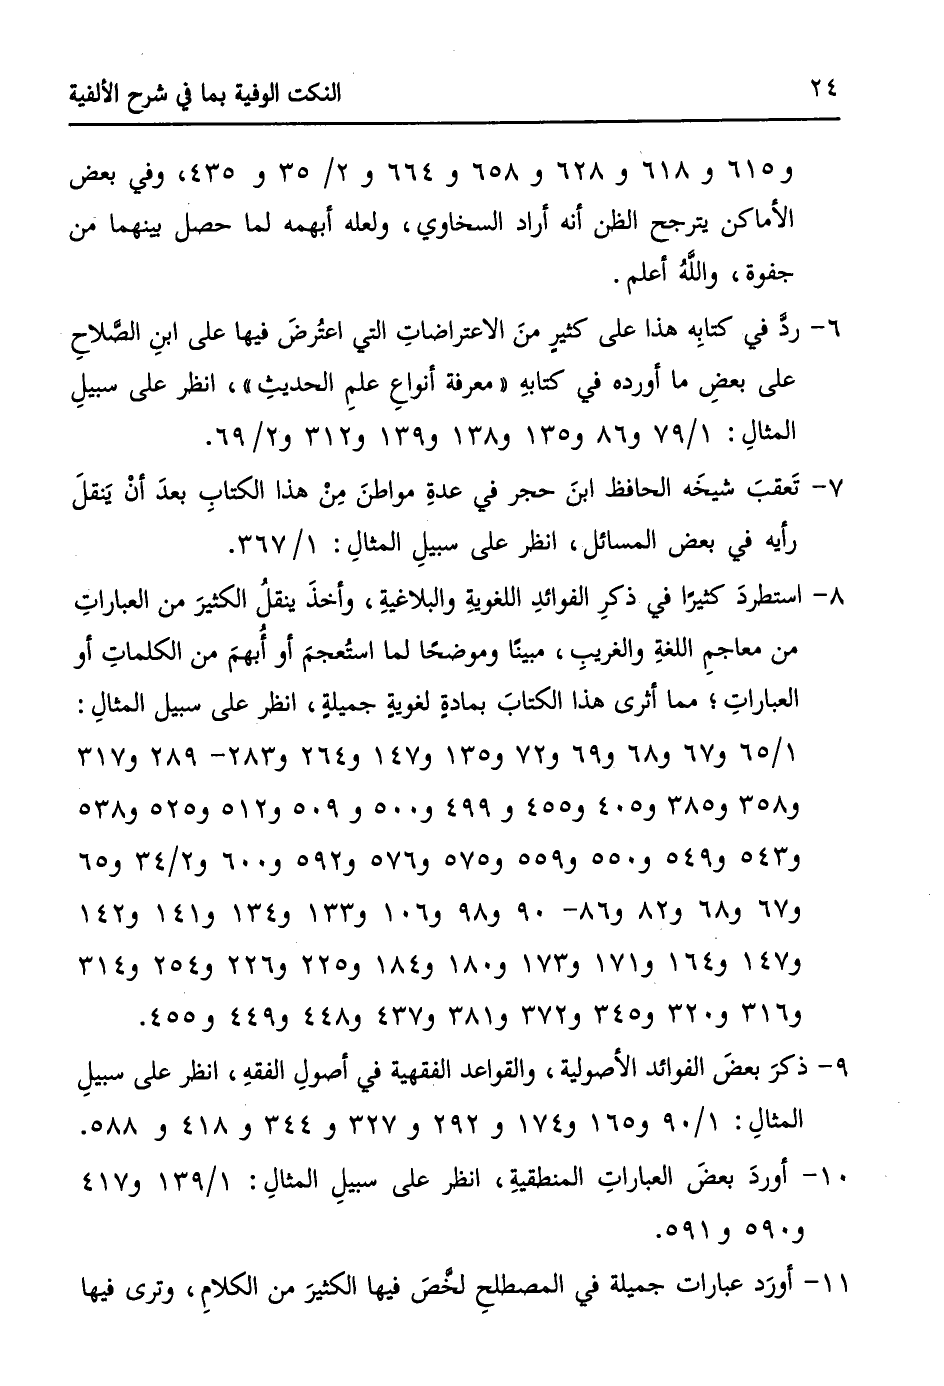 ٢٤
النكت الوفية بما في شرح الألفية
و٦١٥ و ٦١٨ و ٦٢٨ و ٦٥٨ و ٦٦٤ و ٢/ ٣٥ و ٤٣٥، وفي بعض
الأماكن يترجح الظن أنه أراد السخاوي، ولعله أبهمه لما حصل بينهما من
جفوة، واللَّهُ أعلم.
٦- ردَّ في كتابِه هذا على كثيرٍ منَ الاعتراضاتِ التي اعتُرضَ فيها على ابنِ الصَّلاحِ
على بعضِ ما أورده في كتابهِ «معرفة أنواعِ علمِ الحديثِ»، انظر على سبيلِ
المثالِ: ٧٩/١ و٨٦ و١٣٥ و١٣٨ و١٣٩ و٣١٢ و٦٩/٢.
٧- تَعقبَ شيخَه الحافظ ابنَ حجر في عدةِ مواطنَ مِنْ هذا الكتابِ بعدَ أنْ يَنقلَ
رأيه في بعض المسائل، انظر على سبيلِ المثالِ: ٣٦٧/١.
٨- استطردَ كثيرًا في ذكرِ الفوائدِ اللغويةِ والبلاغيةِ، وأخذَ ينقلُ الكثيرَ من العباراتِ
من معاجمِ اللغةِ والغريبِ، مبينًا وموضحًا لما استُعجمَ أو أُبهمَ من الكلماتِ أو
العباراتِ؛ مما أثرى هذا الكتابَ بمادةٍ لغويةٍ جميلةٍ، انظر على سبيل المثالِ:
٦٥/١ و٦٧ و٦٨ و٦٩ و٧٢ و١٣٥ و١٤٧ و٢٦٤ و٢٨٣- ٢٨٩ و٣١٧
و٣٥٨ و٣٨٥ و٤٠٥ و٤٥٥ و ٤٩٩ و٥٠٠ و ٥٠٩ و٥١٢ و٥٢٥ و٥٣٨
و٥٤٣ و٥٤٩ و٥٥٠ و٥٥٩ و٥٧٥ و٥٧٦ و٥٩٢ و٦٠٠ و٣٤/٢ و٦٥
و٦٧ و٦٨ و٨٢ و٨٦- ٩٠ و٩٨ و١٠٦ و١٣٣ و١٣٤ و١٤١ و١٤٢
و١٤٧ و١٦٤ و١٧١ و١٧٣ و١٨٠ و١٨٤ و٢٢٥ و٢٢٦ و٢٥٤ و٣١٤
و٣١٦ و٣٢٠ و٣٤٥ و٣٧٢ و٣٨١ و٤٣٧ و٤٤٨ و٤٤٩ و٤٥٥.
٩- ذكرَ بعضَ الفوائد الأصولية، والقواعد الفقهية في أصولِ الفقهِ، انظر على سبيلِ
المثالِ: ٩٠/١ و١٦٥ و١٧٤ و ٢٩٢ و ٣٢٧ و ٣٤٤ و ٤١٨ و ٥٨٨.
١٠- أوردَ بعضَ العباراتِ المنطقيةِ، انظر على سبيلِ المثالِ: ١٣٩/١ و٤١٧
و٥٩٠ و ٥٩١.
١١- أورَد عبارات جميلة في المصطلحِ لخَّصَ فيها الكثيرَ من الكلامِ، وترى فيها